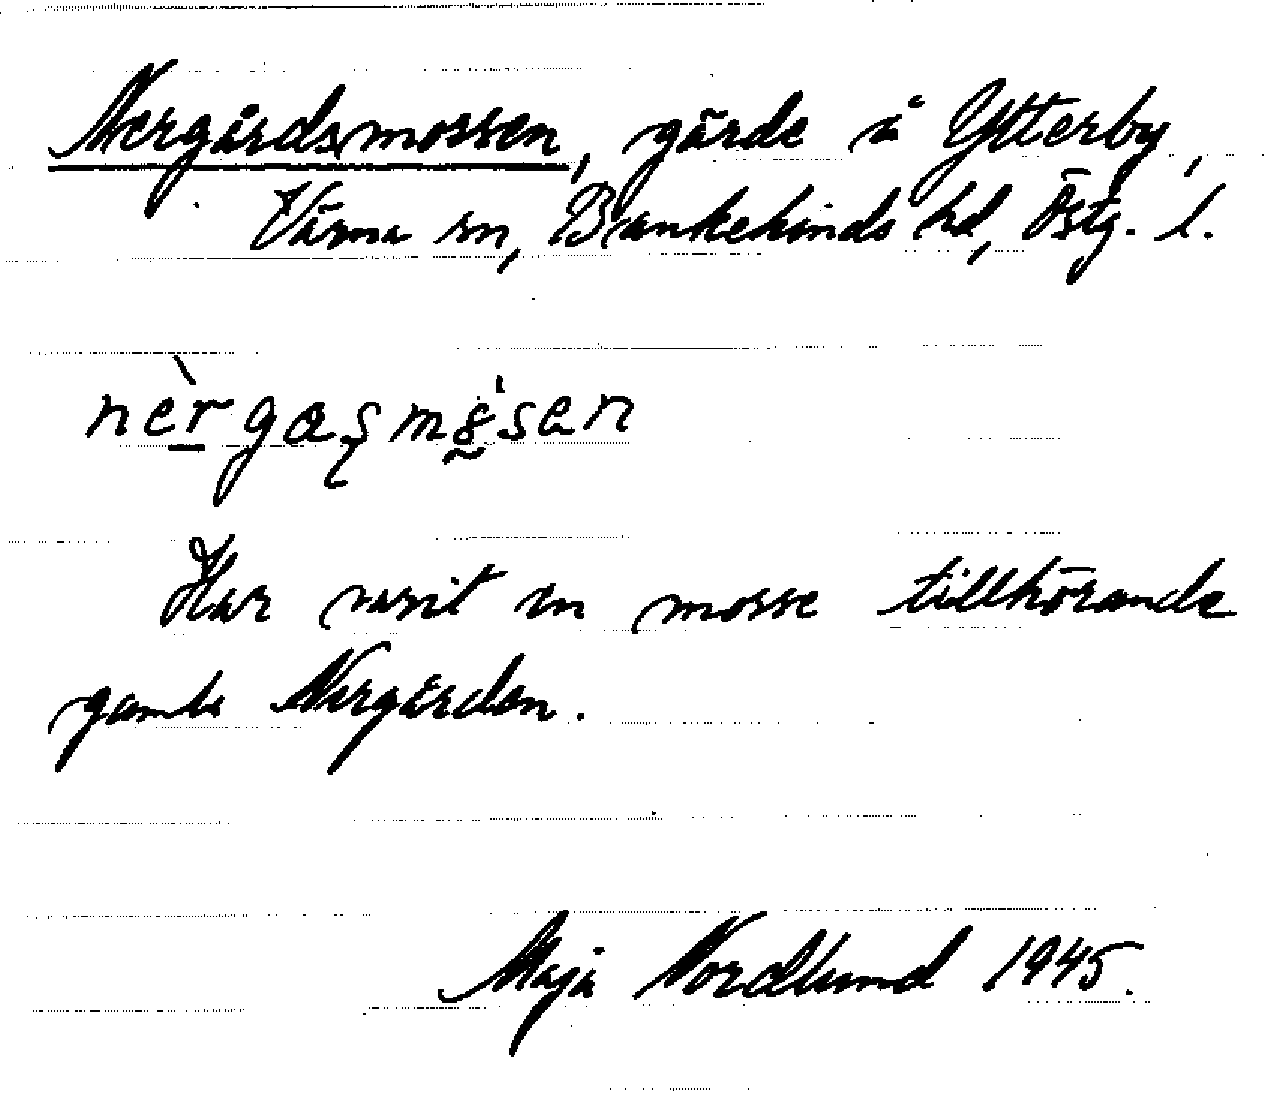 Nergårdsmossen, gärde å Ytterby,
Värna sn, Bankekinds hd, Östg. l.
nèrgaşmɞ̰̀sen
Har varit en mosse tillhörande
gamla Nergården.
Maja Nordlund 1945.